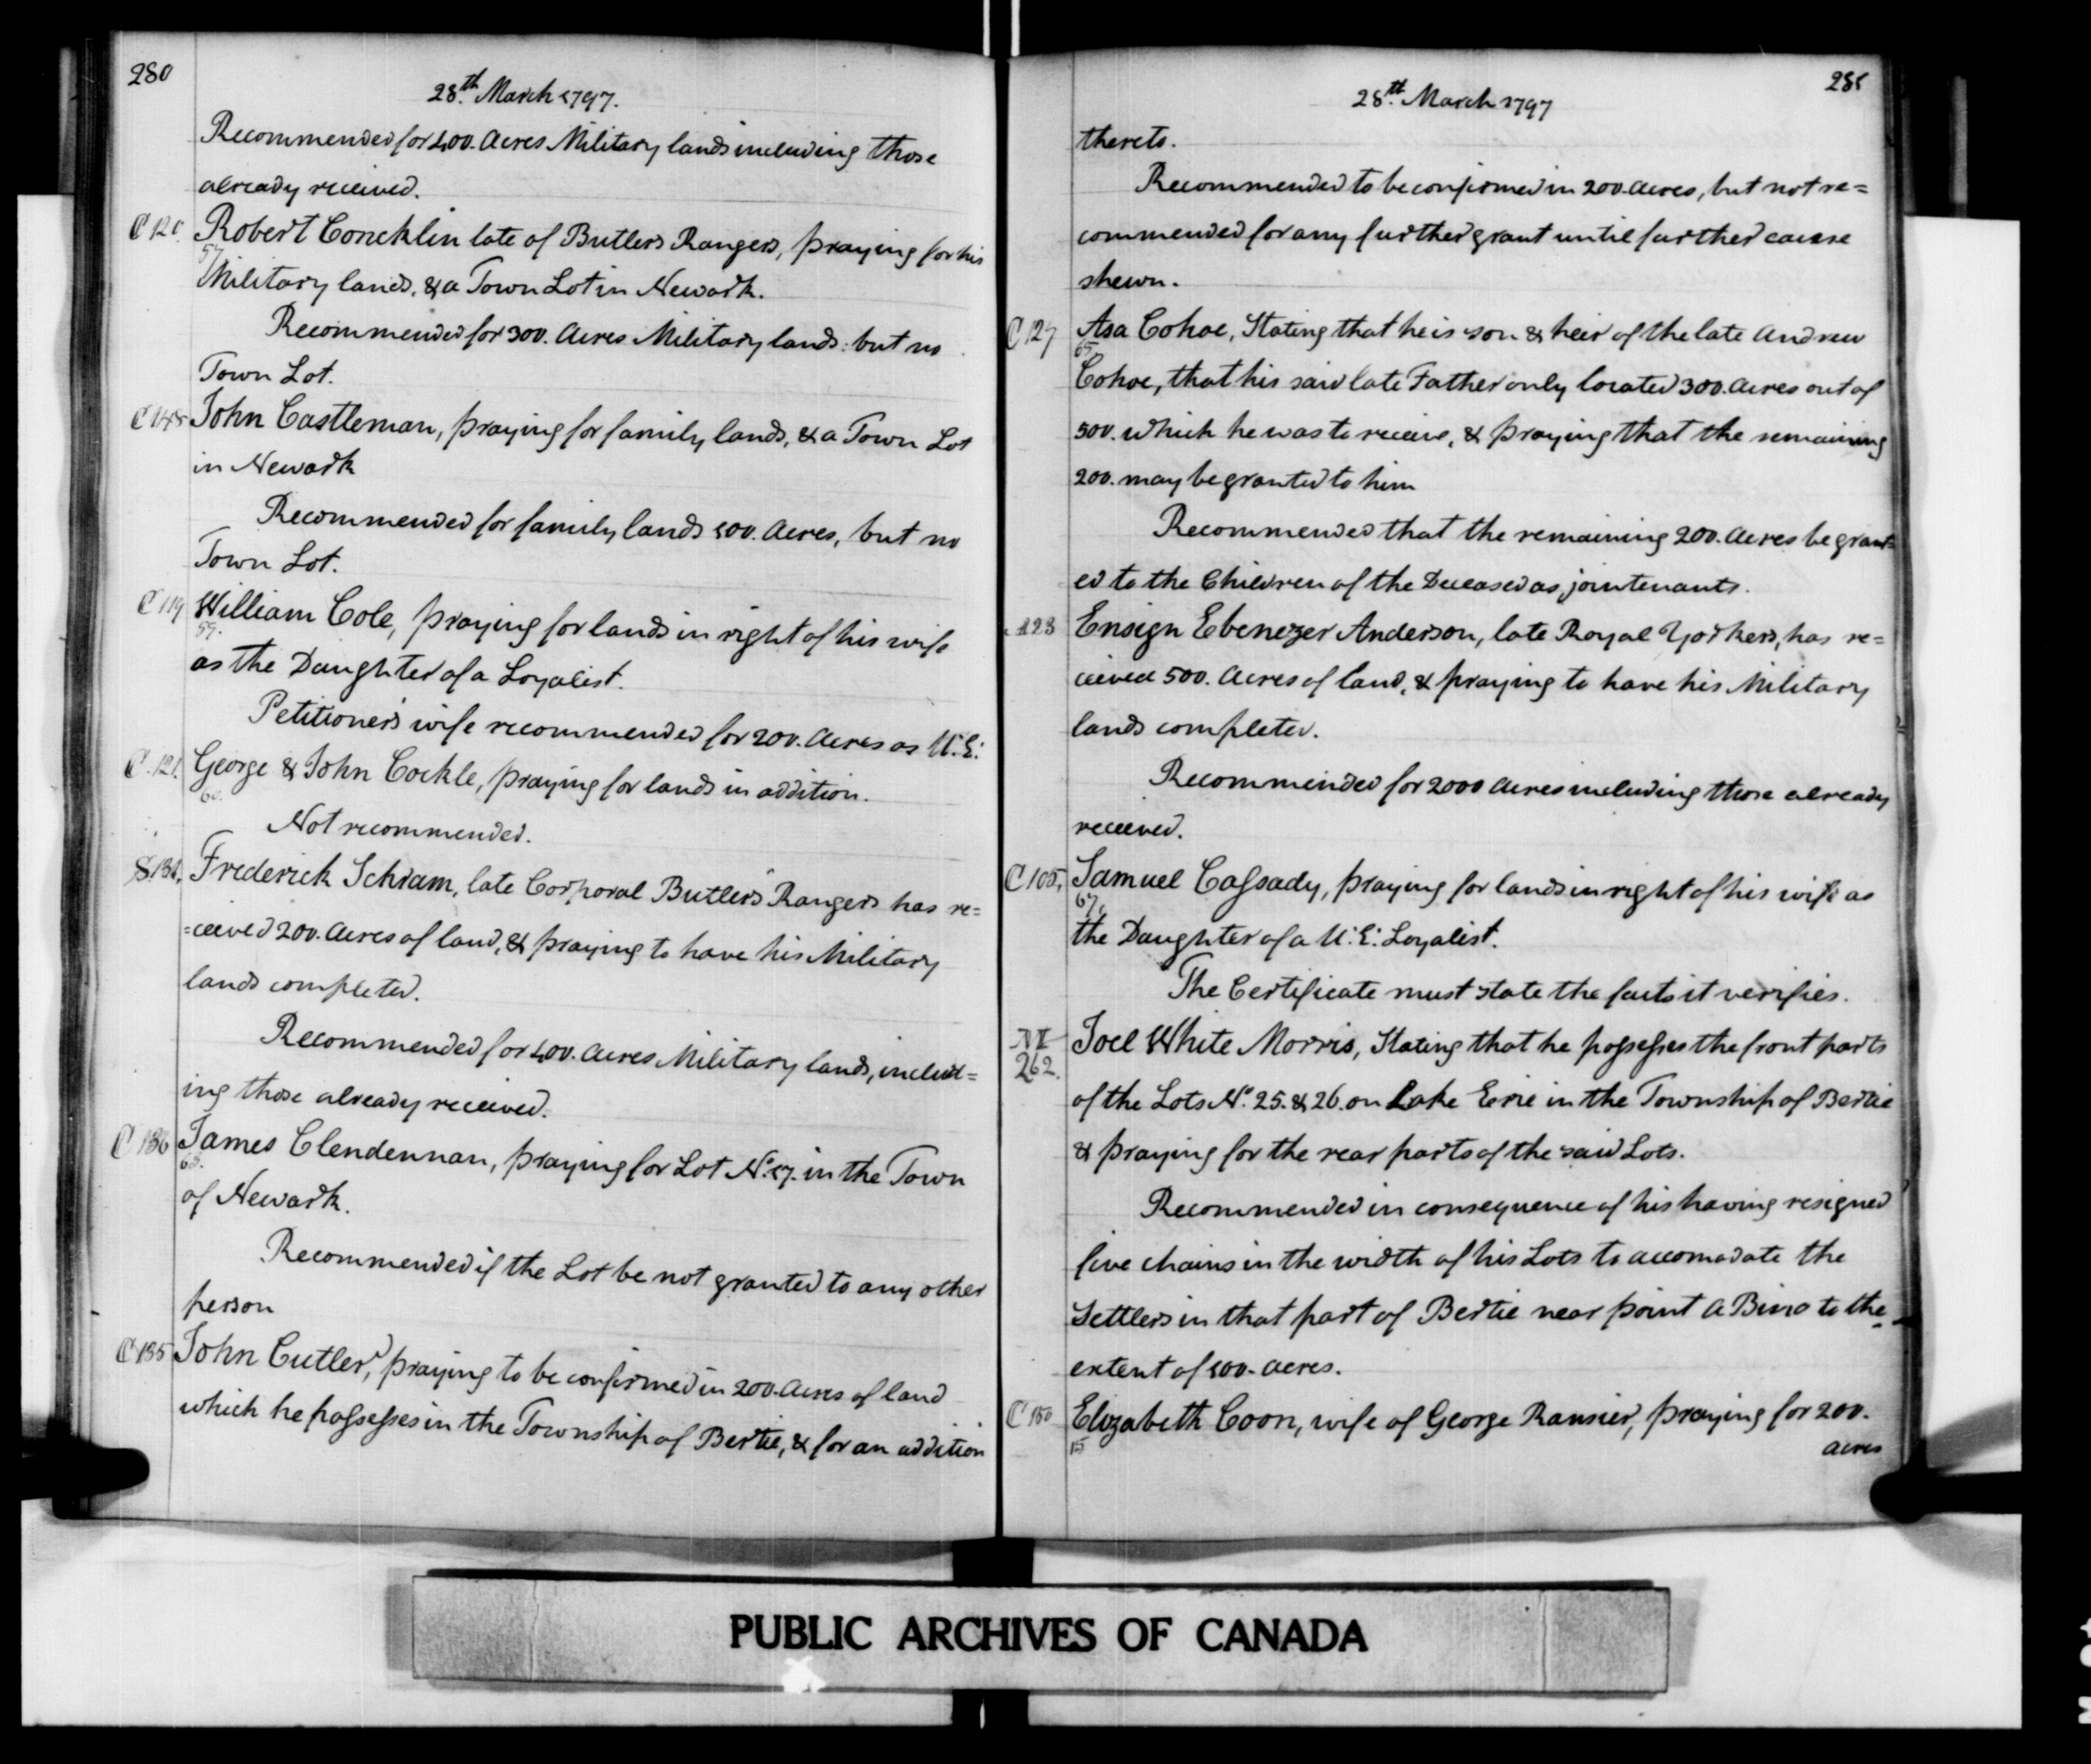 280
28.th March 1797.
Recommended for 400. Acres Military lands including those
already received.
C 120.
Robert Concklin late of Butlers Rangers, praying for his
57
Military lands, & a Town Lot in Newark.
Recommended for 300. Acres Military lands: but no
Town Lot.
C 145
John Castleman, praying for family lands, & a Town Lot
in Newark
Recommended for family lands 100. Acres, but no
Town Lot.
C 119
William Cole, praying for lands in right of his wife
59.
as the Daughter of a Loyalist.
Petitioner's wife recommended for 200. Acres as U.E.
C. 121.
George & John Cockle, praying for lands in addition.
60.
Not recommended.
S. 131.
Frederick Schram, late Corporal Butlers Rangers has re=
=ceived 200. Acres of land, & praying to have his Military
lands completed.
Recommended for 400. Acres Military lands, includ=
ing those already received.
C 136
James Clendennan, praying for Lot No. 17. in the Town
63.
of Newark.
Recommended if the Lot be not granted to any other
person
C 135
John Cutler, praying to be confirmed in 200. Acres of land
which he possesses in the Township of Bertie, & for an addition
281
28.th March 1797
thereto.
Recommended to be confirmed in 200. acres, but not re=
commended for any further grant until further cause
shewn.
C 127
Asa Cohoe, Stating that he is son & heir of the late Andrew
65
Cohoe, that his said late Father only located 300. Acres out of
500. which he was to receive, & praying that the remaining
200. may be granted to him
Recommended that the remaining 200. Acres be grant=
ed to the Children of the Deceased as jointenants.
A 23
Ensign Ebenezer Anderson, late Royal Yorkers, has re=
ceived 500. Acres of land, & praying to have his Military
lands completed.
Recommended for 2000 Acres including those already
received.
C 105,
Samuel Cassady, praying for lands in right of his wife as
67,
the Daughter of a U.E. Loyalist.
The Certificate must state the facts it verifies.
M
262.
Joel White Morris, Stating that he possesses the front parts
of the Lots No. 25. & 26. on Lake Erie in the Township of Bertie
& praying for the rear parts of the said Lots.
Recommended in consequence of his having resigned
five chains in the width of his Lots to accomodate the
Settlers in that part of Bertie near point A Bino to the
extent of 100. acres.
C 150
Elizabeth Coon, wife of George Ransier, praying for 200.
15
acres
PUBLIC ARCHIVES OF CANADA